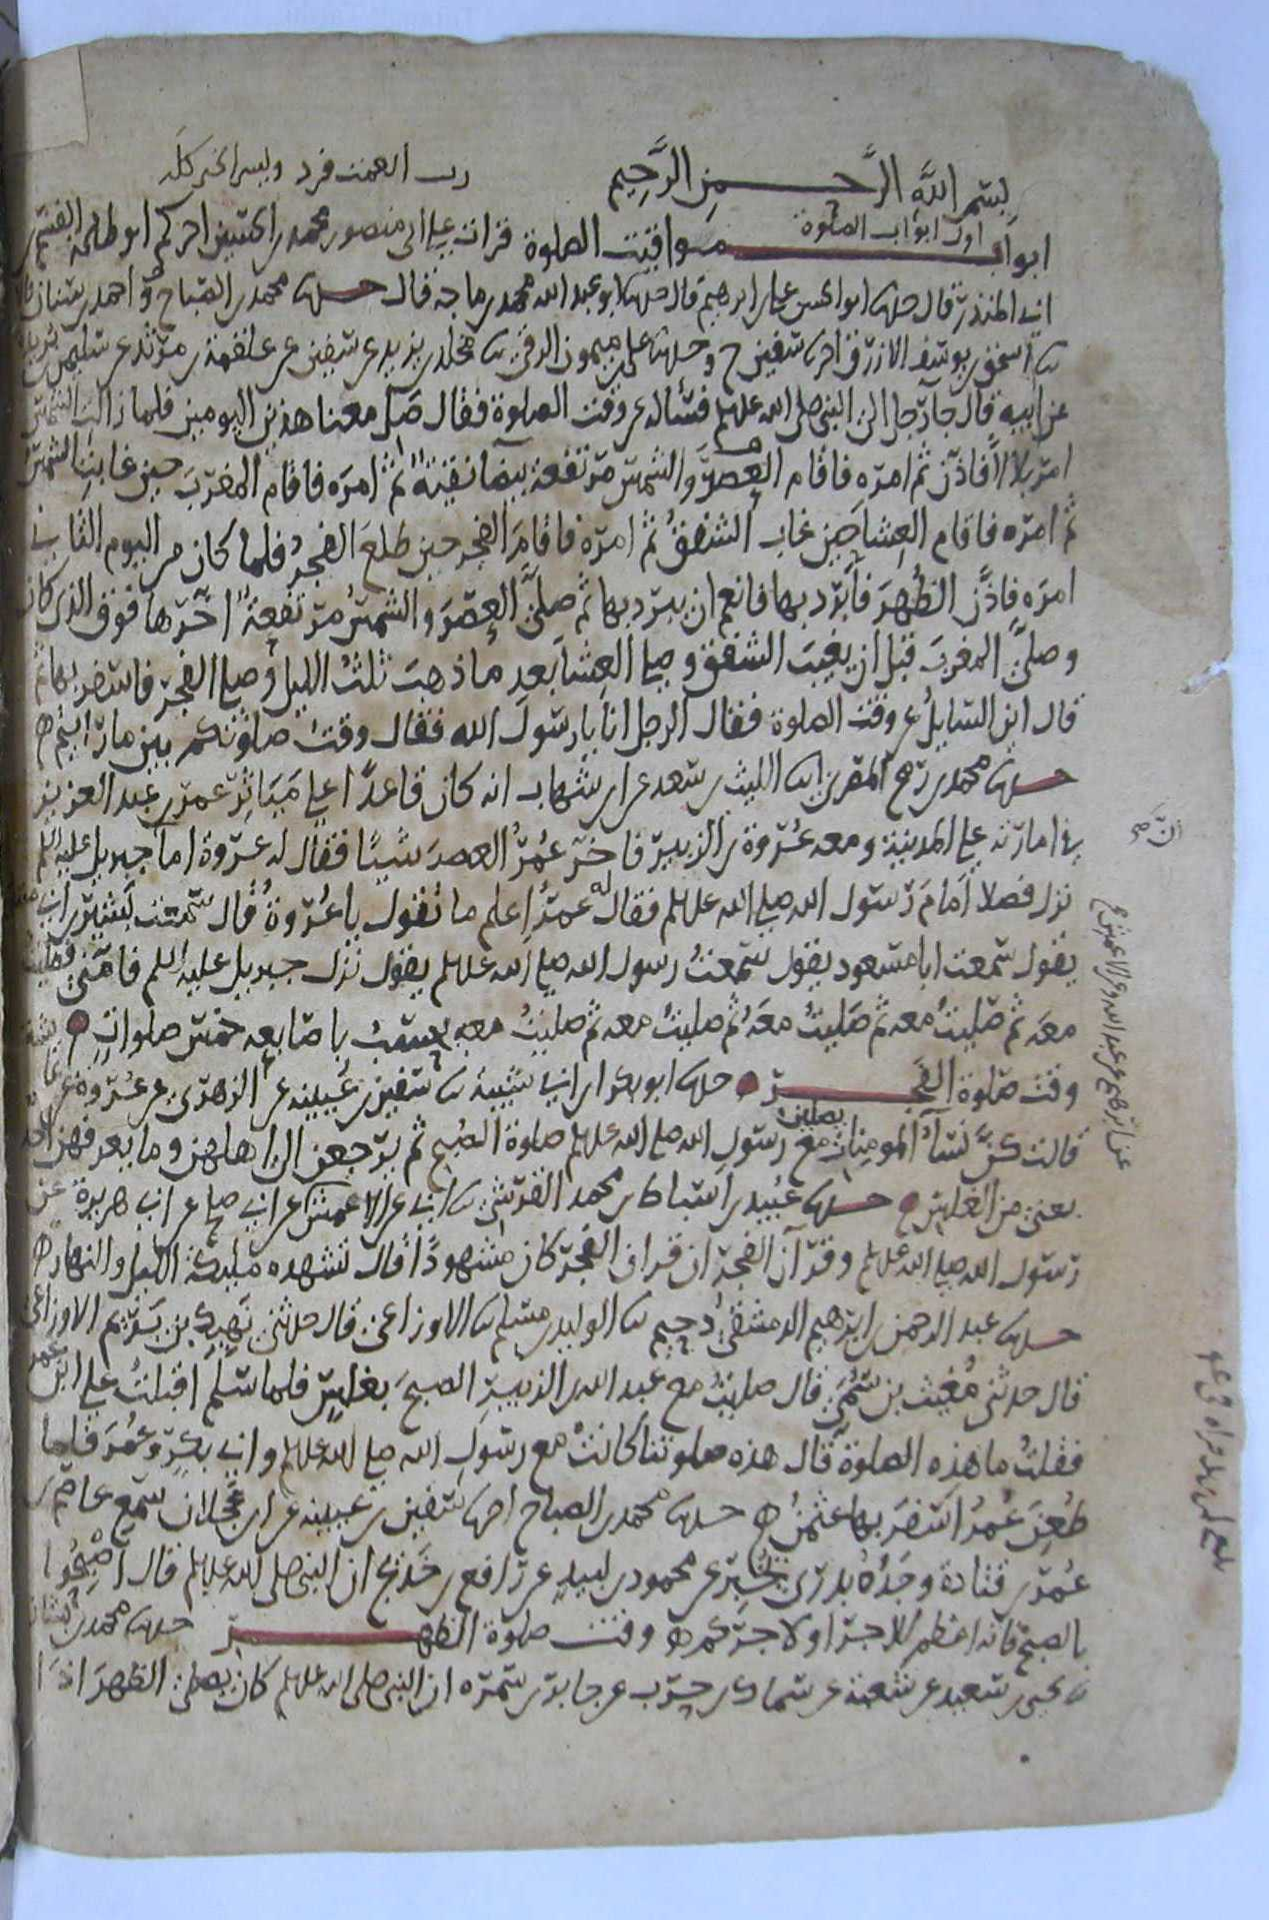 بسم الله الرحمن الرحيم رب انعمت فزد ويسر الخير كله
اول ابواب الصلوة
ابواب مواقيت الصلوة قرات على ابي منصور محمد بن الحسين اخبركم ابو طلحة القسم بن
ابي المنذر قال حدثنا ابو الحسن علي بن ابرهيم قال حدثنا ابو عبد الله محمد بن ماجه قال حدثنا محمد بن الصباح واحمد بن سنان قالا
ثنا اسحق بن يوسف الازرق انا سفين ح وحدثنا علي بن ميمون الرقي ثنا مخلد بن يزيد عن سفين عن علقمة بن مرثد عن سليمن بن بريدة
عن ابيه قال جا رجل الى النبي صلى الله عليه وسلم فساله عن وقت الصلوة فقال صل معنا هذين اليومين فلما زالت الشمس
امر بلالا فاذن ثم امره فاقام العصر والشمس مرتفعة بيضا نقية ثم امره فاقام المغرب حين غابت الشمس
ثم امره فاقام العشا حين غاب الشفق ثم امره فاقام الفجر حين طلع الفجر فلما كان من اليوم الثاني
امره فاذن الظهر فابرد بها فانعم ان يبرد بها ثم صلى العصر والشمس مرتفعة اخرها فوق الذي كان
وصلى المغرب قبل ان يغيب الشفق وصلى العشا بعد ما ذهب ثلث الليل وصلى الفجر فاسفر بها ثم
قال اين السايل عن وقت الصلوة فقال الرجل انا يا رسول الله فقال وقت صلوتكم بين ما رايتم
حدثنا محمد بن رمح المصري ثنا الليث بن سعد عن ابن شهاب انه كان قاعدا على مياثر عمر بن عبد العزيز
في امارته على المدينة ومعه عروة بن الزبير فاخر عمر العصر شيئا فقال له عروة اما جبريل عليه السلم
نزل فصلا امام رسول الله صلى الله عليه وسلم فقال له عمر اعلم ما تقول يا عروة قال سمعت بشير بن ابي مسعود
يقول سمعت ابا مسعود يقول سمعت رسول الله صلى الله عليه وسلم يقول نزل جبريل عليه السلم فامني فصليت
معه ثم صليت معه ثم صليت معه ثم صليت معه ثم صليت معه يحسب باصابعه خمس صلوات
وقت صلوة الفجر حدثنا ابو بكر بن ابي شيبة ثنا سفين بن عيينة عن الزهري عن عروة عن عايشة
قالت كن نسا المومنات يصلين مع رسول الله صلى الله عليه وسلم صلوة الصبح ثم يرجعن الى اهلهن وما يعرفهن احد
يعني من الغلس حدثنا عبيد بن اسباط بن محمد القرشي ثنا ابي عن الاعمش عن ابي صالح عن ابي هريرة عن
رسول الله صلى الله عليه وسلم وقرآن الفجر ان قران الفجر كان مشهودا قال تشهده ملئكة الليل والنهار
حدثنا عبد الرحمن بن ابرهيم الدمشقي دحيم ثنا الوليد بن مسلم ثنا الاوزاعي قال حدثني نهيك بن يريم الاوزاعي
قال حدثني مغيث بن سمي قال صليت مع عبد الله بن الزبير الصبح بغلس فلما سلم اقبلت على ابن عمر
فقلت ما هذه الصلوة قال هذه صلوتنا كانت مع رسول الله صلى الله عليه وسلم وابي بكر وعمر فلما
طعن عمر اسفر بها عثمن حدثنا محمد بن الصباح انا سفين بن عيينة عن ابن عجلان سمع عاصم بن
عمر بن قتادة وجده بدري يخبر عن محمود بن لبيد عن رافع بن خديج ان النبي صلى الله عليه وسلم قال اصبحوا
بالصبح فانه اعظم للاجر او لاجركم وقت صلوة الظهر حدثنا محمد بن بشار
ثنا يحيى بن سعيد عن شعبة عن سماك بن حرب عن جابر بن سمرة ان النبي صلى الله عليه وسلم كان يصلي الظهر اذا
عن ابرهيم عن عبد الله وعن الاعمش